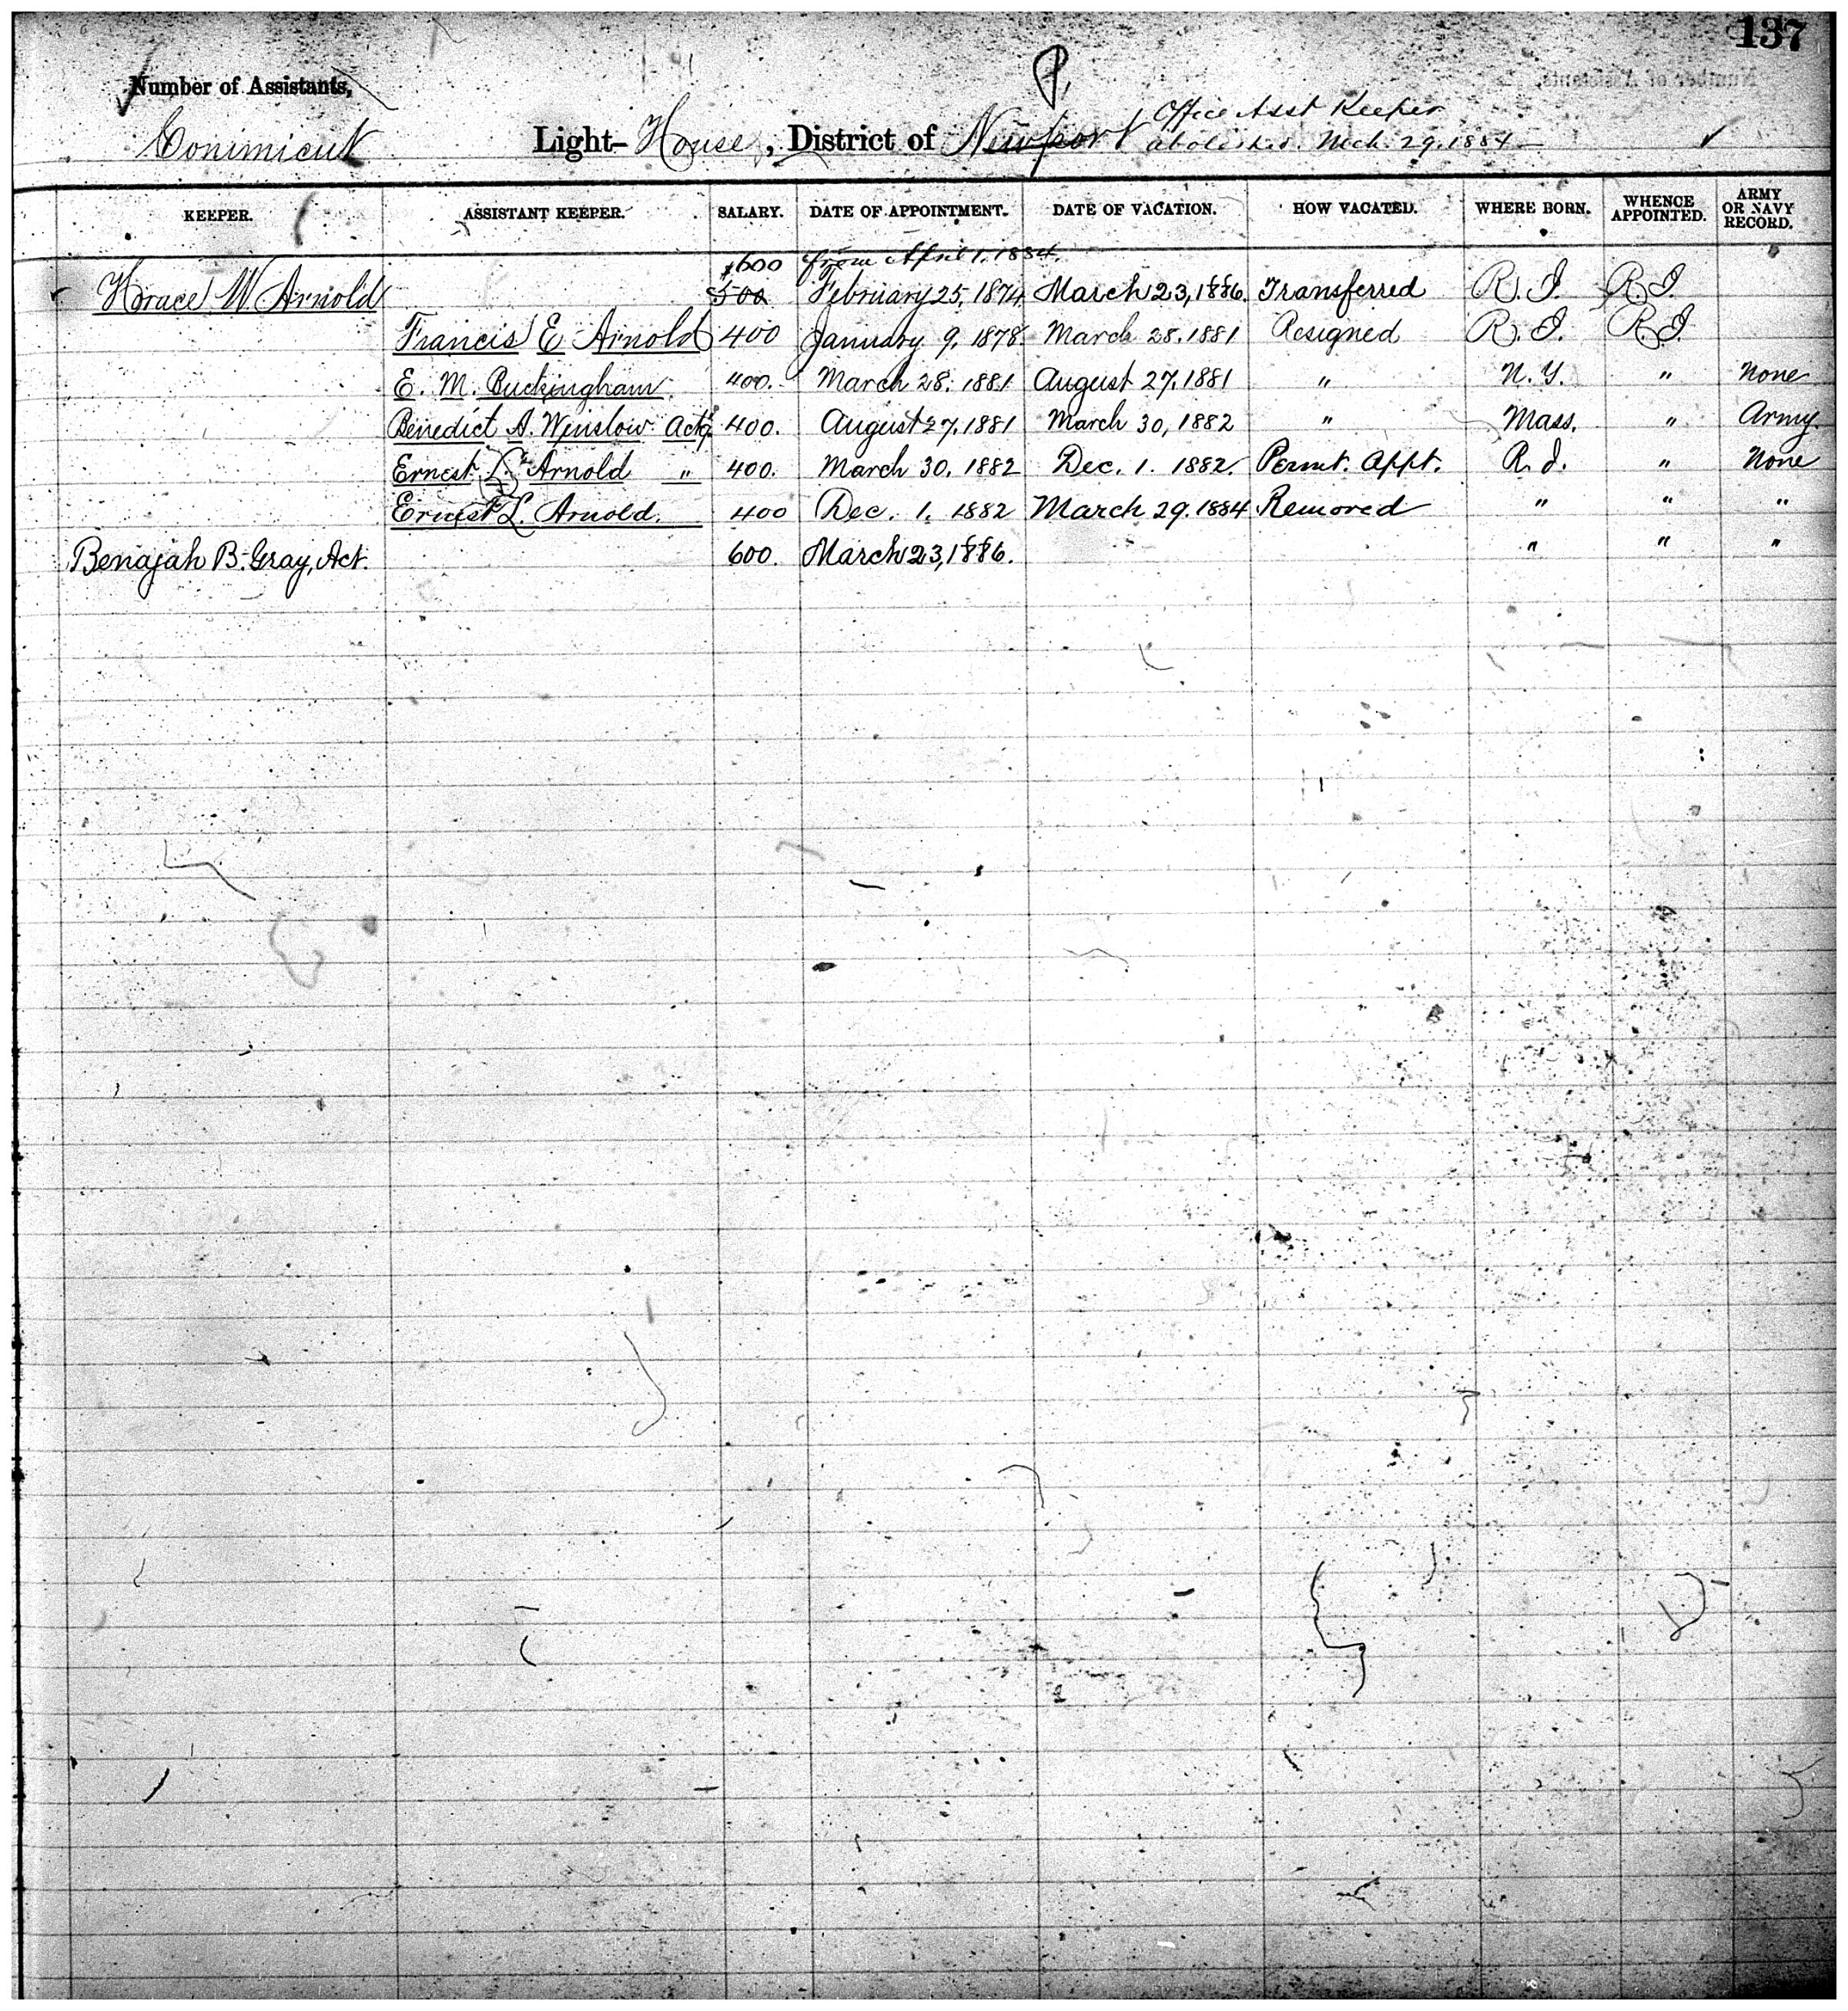 137
Number of Assistants,
P,
Conimicut Light-House, District of Newport Office Asst Keeper
abolished. Mch. 29. 1884
KEEPER. ASSISTANT KEEPER. SALARY. DATE OF APPOINTMENT. DATE OF VACATION. HOW VACATED. WHERE BORN. WHENCE APPOINTED. ARMY OR NAVY RECORD.
$600 from April 1. 1884.
Horace W. Arnold 500 February 25, 1874 March 23, 1886. Transferred R. I. R. I.
Francis E Arnold 400 January 9, 1878. March 28. 1881 Resigned R. I. R. I.
E. M. Buckingham. 400. March 28. 1881 August 27. 1881 " N. Y. " None
Benedict A. Winslow Actg. 400. August 27. 1881 March 30, 1882 " Mass. " Army.
Ernest L. Arnold " 400. March 30. 1882 Dec. 1. 1882. Permt. Appt. R. I. " None
Ernest L. Arnold. 400 Dec. 1. 1882 March 29. 1884 Removed " " "
Benajah B. Gray, Act. 600. March 23, 1886. " " "